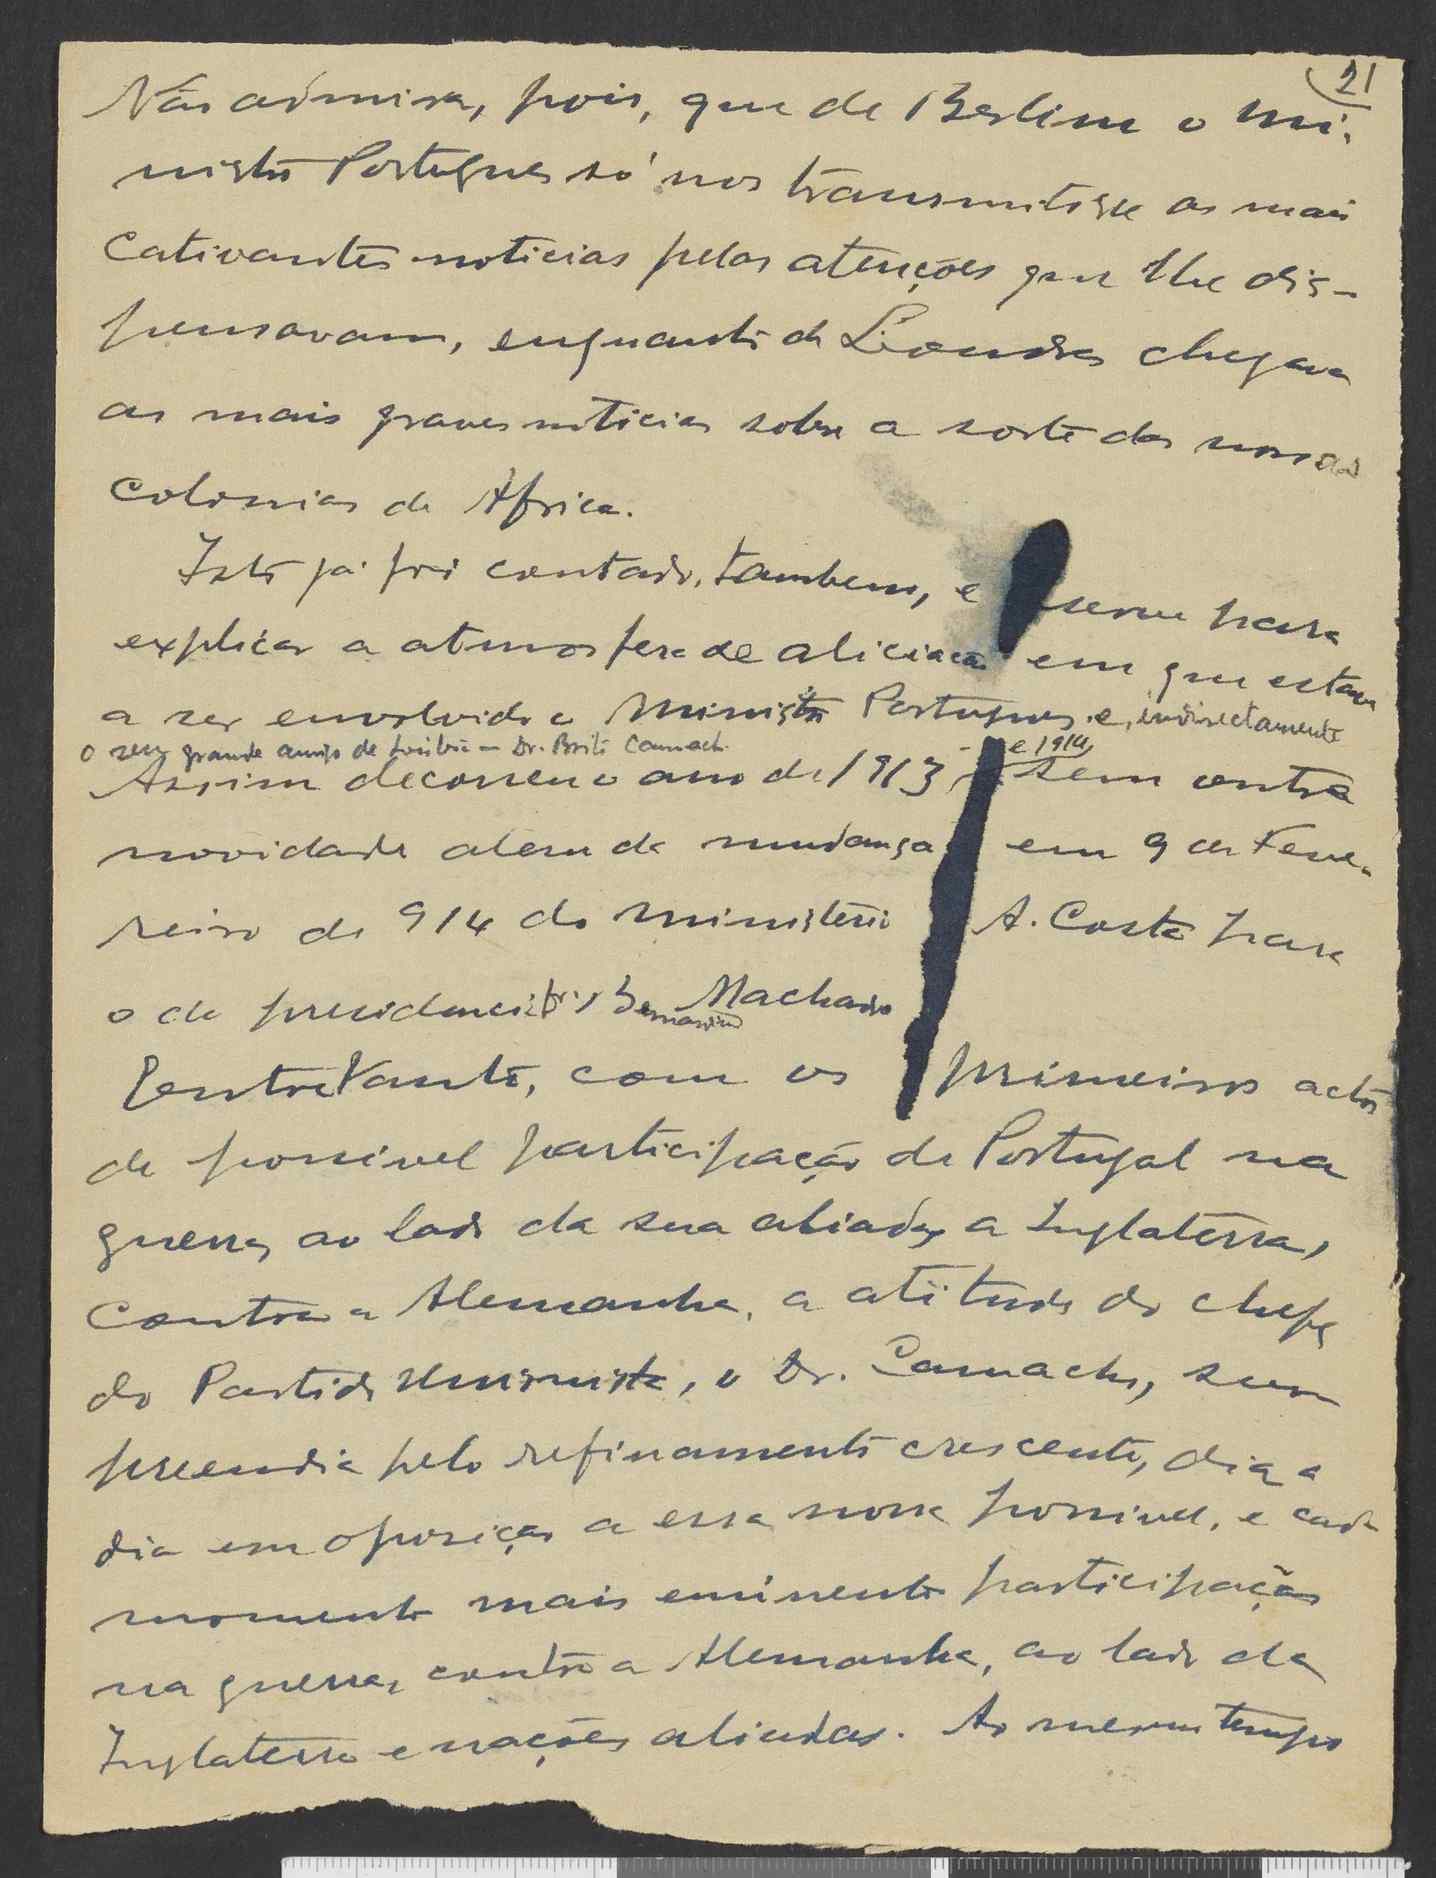 21
Não admira, pois, que de Berlim o mi-
nistro Portugues só nos transmitisse as mais
cativantes noticias pelas atenções que lhe dis-
pensavam, enquanto de Londres chegava
as mais graves noticias sobre a sorte das nossas
colonias de África.
Isto já foi contado, tambem, e serve para
explicar a atmosfera de aliciação em que estava
a ser envolvido o Ministro Portugues e, indirectamente
o seu grande amigo de Lisboa - Dr. Brito Camacho.
Assim decorreu o ano de 1913 e 1914, sem outra
novidade alem da mudança em 9 de Feve-
reiro de 914 do ministério A. Costa para
o da presidencia Bernardino Machado
Entretanto, com os primeiros actos
de possivel participação de Portugal na
guerra, ao lado da sua aliada, a Inglaterra,
contra a Alemanha, a atitude do chefe
do Partido Unionista, o Dr. Camacho, surr
preendia pelo refinamento crescente, dia a
dia em oposição a essa nossa possivel, e cada
momento mais eminente participação
na guerra, contra a Alemanha, ao lado da
Inglaterra e nações aliadas. Ao mesmo tempo